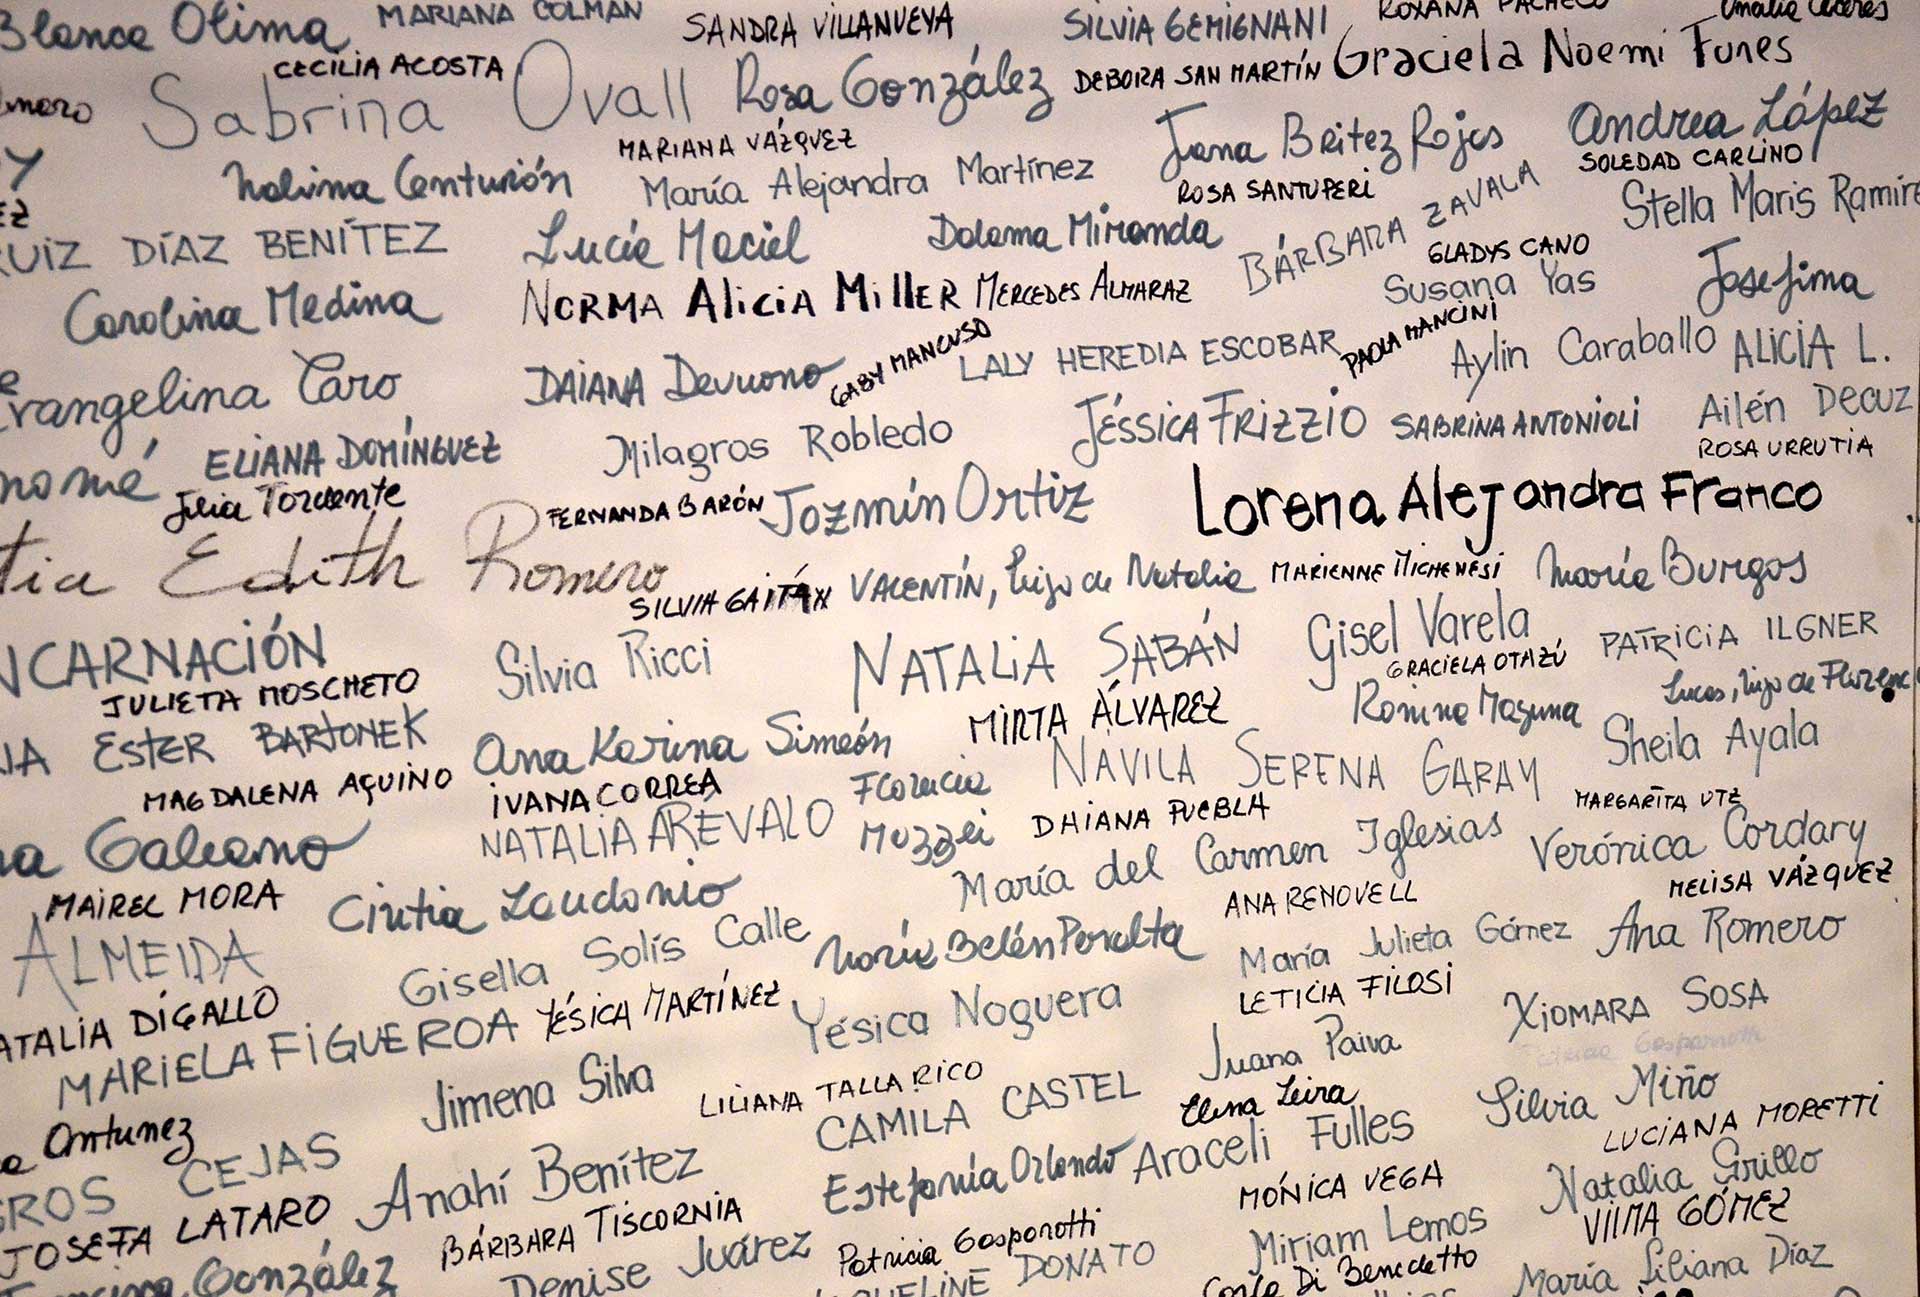 Blanca Olima MARIANA COLMAN SANDRA VILLANUEVA SILVIA GEMIGNANI ROXANA PACHECO Amalia Cáceres
CECILIA ACOSTA
Sabrina Ovall Rosa González DEBORA SAN MARTÍN Graciela Noemi Funes
MARIANA VÁZQUEZ Juana Britez Rojas Andrea López
SOLEDAD CARLINO
Centurión María Alejandra Martínez ROSA SANTUPERI Stella Maris
RUIZ DÍAZ BENÍTEZ Lucía Maciel Miranda BÁRBARA ZAVALA
GLADYS CANO
Carolina Medina NORMA Alicia Miller MERCEDES ALMARAZ Susana Yas Josefina
GABY MANCUSO PAOLA MANCINI
Evangelina Caro DAIANA Devuono LALY HEREDIA ESCOBAR Aylin Caraballo ALICIA L.
ELIANA DOMÍNGUEZ Milagros Robledo JÉSSICA FRIZZIO SABRINA ANTONIOLI Ailén Decuz
ROSA URRUTIA
Julia Torrente FERNANDA BARÓN Jazmín Ortiz Lorena Alejandra Franco
Edith Romero
SILVIA GAITÁN VALENTÍN, hijo de Natalia MARIENNE MICHENESI María Burgos
ENCARNACIÓN Silvia Ricci NATALIA SABÁN Gisel Varela PATRICIA ILGNER
JULIETA MOSCHETO MIRTA ÁLVAREZ GRACIELA OTAZÚ Lucas, hijo de
ESTER BARTONEK Ana Karina Simeón Romina Maguna Sheila Ayala
MAGDALENA AQUINO IVANA CORREA Florencia Muzzei NAVILA SERENA GARAY MARGARITA UTZ
NATALIA ARÉVALO DHIANA PUEBLA
Galeano María del Carmen Iglesias Verónica Cordary
MAIREL MORA Cintia Laudonio ANA RENOVELL MELISA VÁZQUEZ
ALMEIDA Gisella Solís Calle María Belén Peralta María Julieta Gómez Ana Romero
NATALIA DIGALLO YÉSICA MARTÍNEZ Yésica Noguera LETICIA FILOSI XIOMARA SOSA
MARIELA FIGUEROA Juana Paiva Gasparotti
Antunez Jimena Silva LILIANA TALLARICO CAMILA CASTEL Elena Leira Silvia Miño
LUCIANA MORETTI
CEJAS Anahí Benítez Estefanía Orlando Araceli Fulles Natalia Grillo
JOSEFA LATARO BÁRBARA TISCORNIA MÓNICA VEGA VILMA GÓMEZ
González Denise Juárez Patricia Gasparotti Miriam Lemos
DONATO Carla Di Benedetto María Liliana Díaz